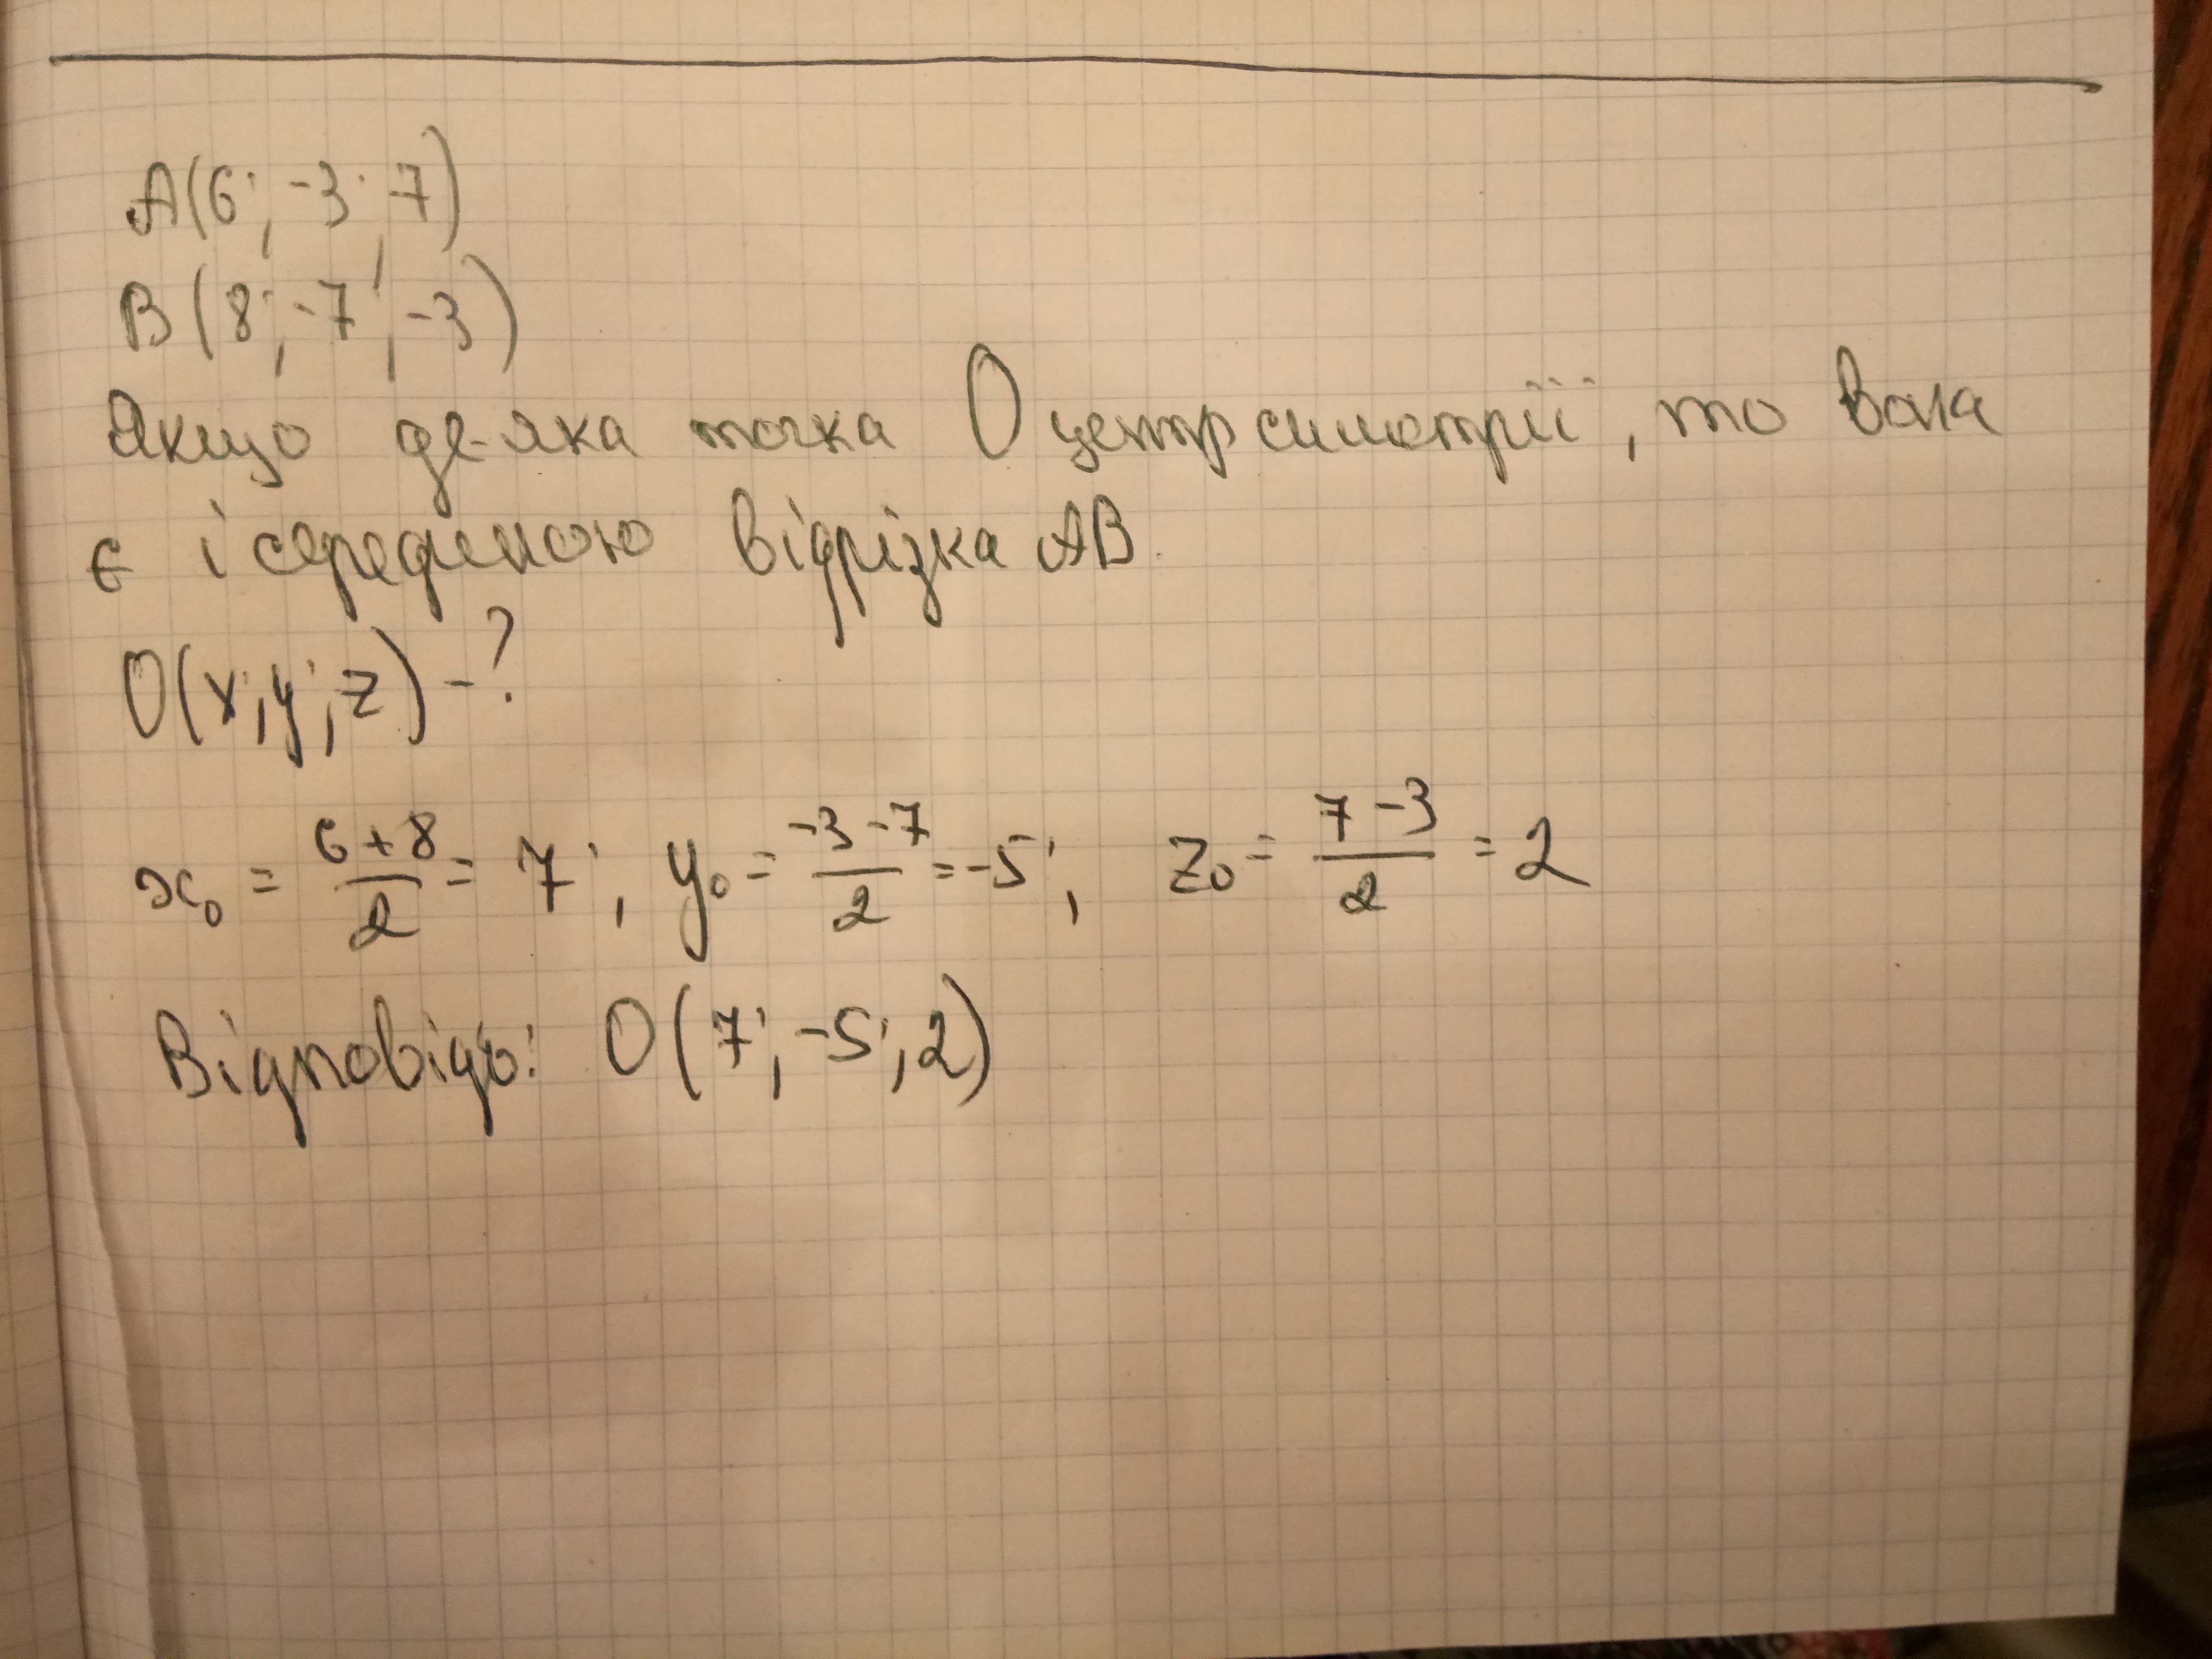 A(6; -3; 7)
B(8; -7; -3)
Якщо де-яка точка O центр симетрії, то вона
є і серединою відрізка AB.
O(x; y; z) - ?
x₀ = (6+8)/2 = 7; y₀ = (-3-7)/2 = -5; z₀ = (7-3)/2 = 2
Відповідь: O(7; -5; 2)